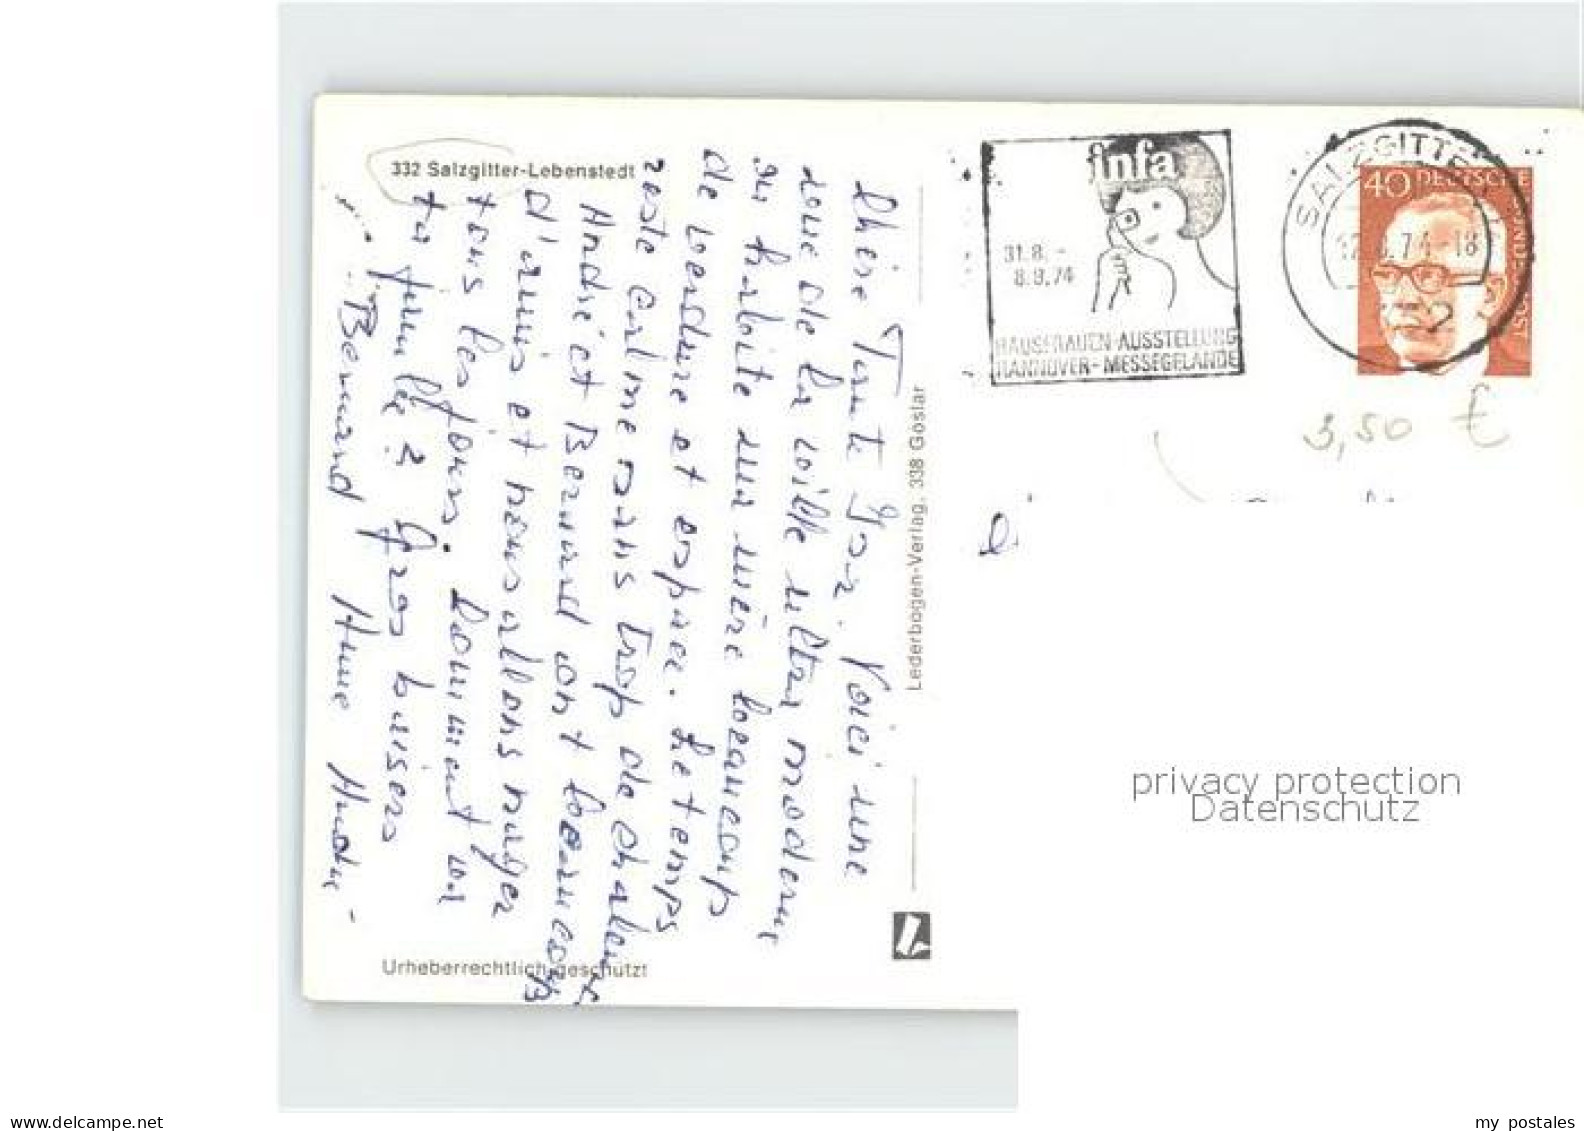 332 Salzgitter-Lebenstedt
infa
31.8. -
8.9.74
HAUSFRAUEN-AUSSTELLUNG
HANNOVER-MESSEGELÄNDE
SALZGITTER
.74-18
2
40 DEUTSCHE
BUNDESPOST
3,50 €
Chère Tante Voici une
vue de la ville ultra moderne
où habite ma mère beaucoup
de verdure et espace. Le temps
reste calme sans trop de chaleur
André et Bernard ont beaucoup
d'amis et nous allons nager
tous les jours. Comment va
ta famille? Gros baisers
Bernard Anne André -
Lederbogen-Verlag, 338 Goslar
Urheberrechtlich geschützt
privacy protection
Datenschutz
www.delcampe.net
my postales